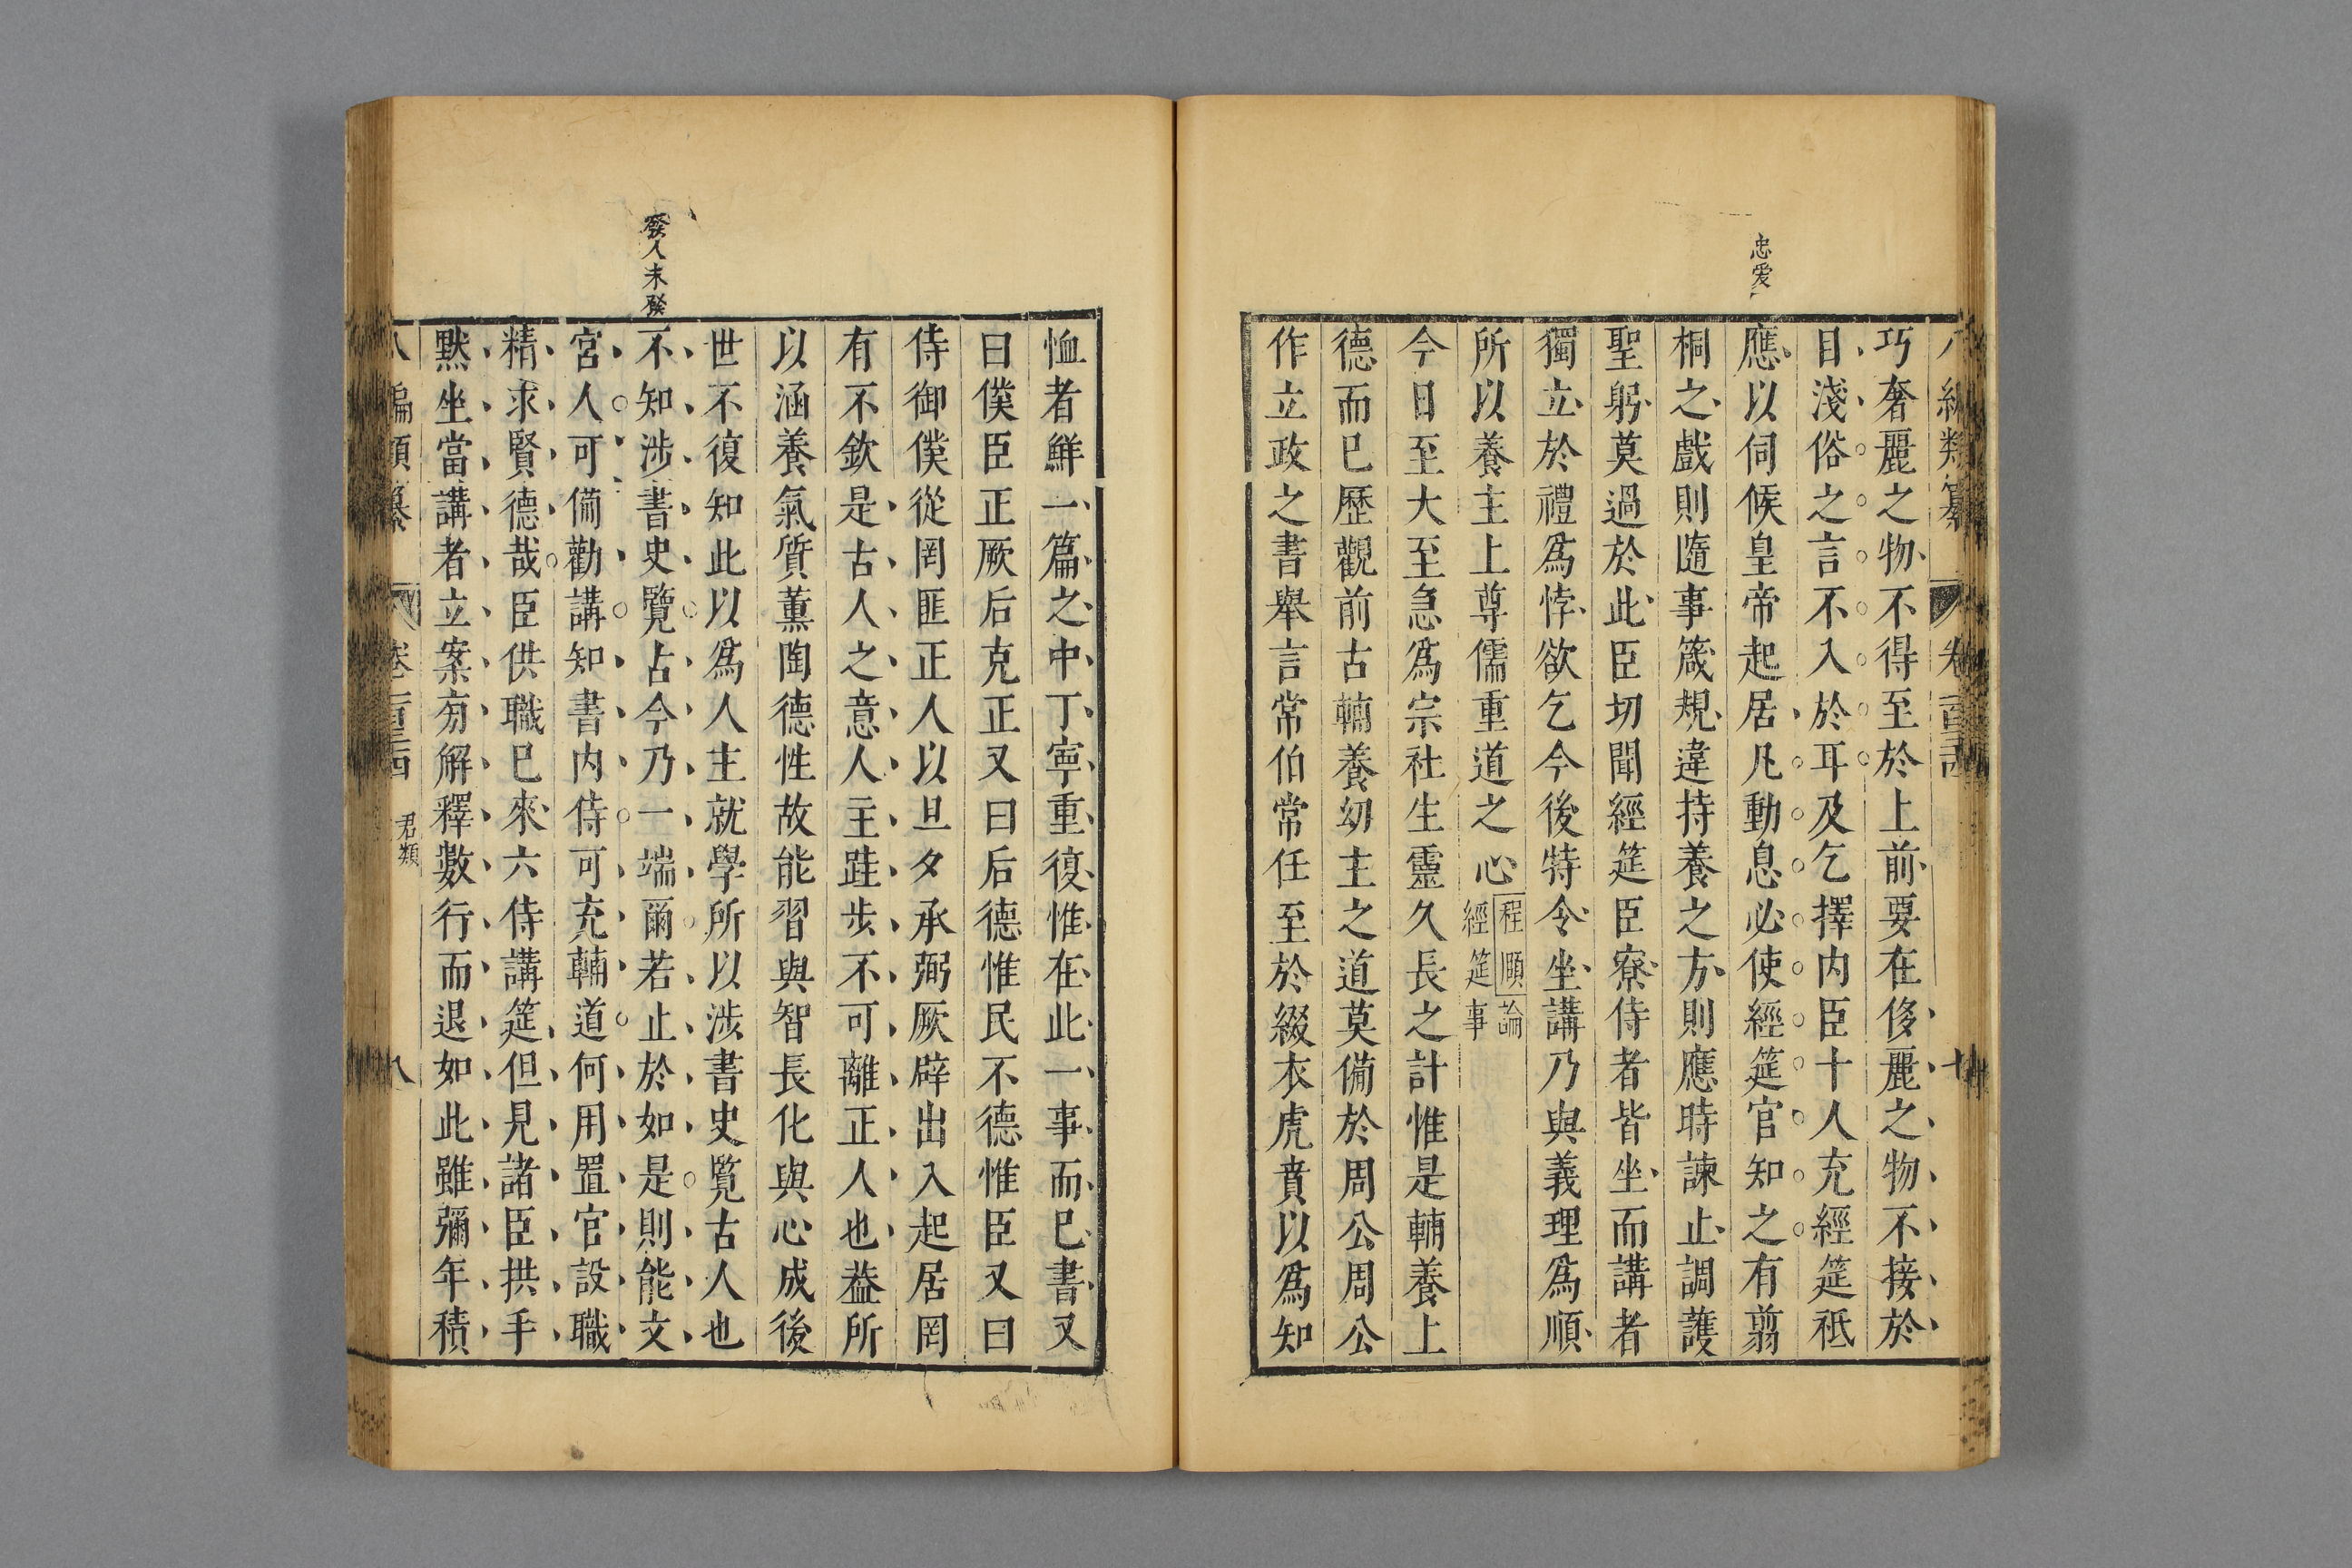 忠愛
巧奢麗之物不得至於上前要在侈麗之物不接於
目淺俗之言不入於耳及乞擇内臣十人充經筵祗
應以伺候皇帝起居凡動息必使經筵官知之有翦
桐之戲則隨事箴規違持養之方則應時諫止調護
聖躬莫過於此臣切聞經筵臣寮侍者皆坐而講者
獨立於禮爲悖欲乞今後特令坐講乃與義理爲順
所以養主上尊儒重道之心
程頤論
經筵事
今日至大至急爲宗社生靈久長之計惟是輔養上
德而已歷觀前古輔養幼主之道莫備於周公周公
作立政之書舉言常伯常任至於綴衣虎賁以爲知
恤者鮮一篇之中丁寧重復惟在此一事而已書又
曰僕臣正厥后克正又曰后德惟民不德惟臣又曰
侍御僕從罔匪正人以旦夕承弼厥辟出入起居罔
有不欽是古人之意人主跬步不可離正人也葢所
以涵養氣質薰陶德性故能習與智長化與心成後
世不復知此以爲人主就學所以涉書史覧古人也
發人未發
不知涉書史覽古今乃一端爾若止於如是則能文
宮人可備勸講知書内侍可充輔道何用置官設職
精求賢德哉臣供職已來六侍講筵但見諸臣拱手
默坐當講者立案旁解釋數行而退如此雖彌年積
八編類纂 卷 君類 八